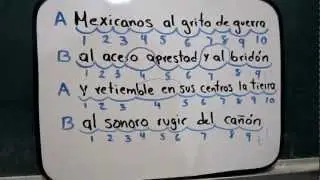 A Mexicanos al grito de guerra
1 2 3 4 5 6 7 8 9 10
B al acero aprestad y al bridón
1 2 3 4 5 6 7 8 9
A Y retiemble en sus centros la tierra
1 2 3 4 5 6 7 8 9 10
B al sonoro rugir del cañón
1 2 3 4 5 6 7 8 9